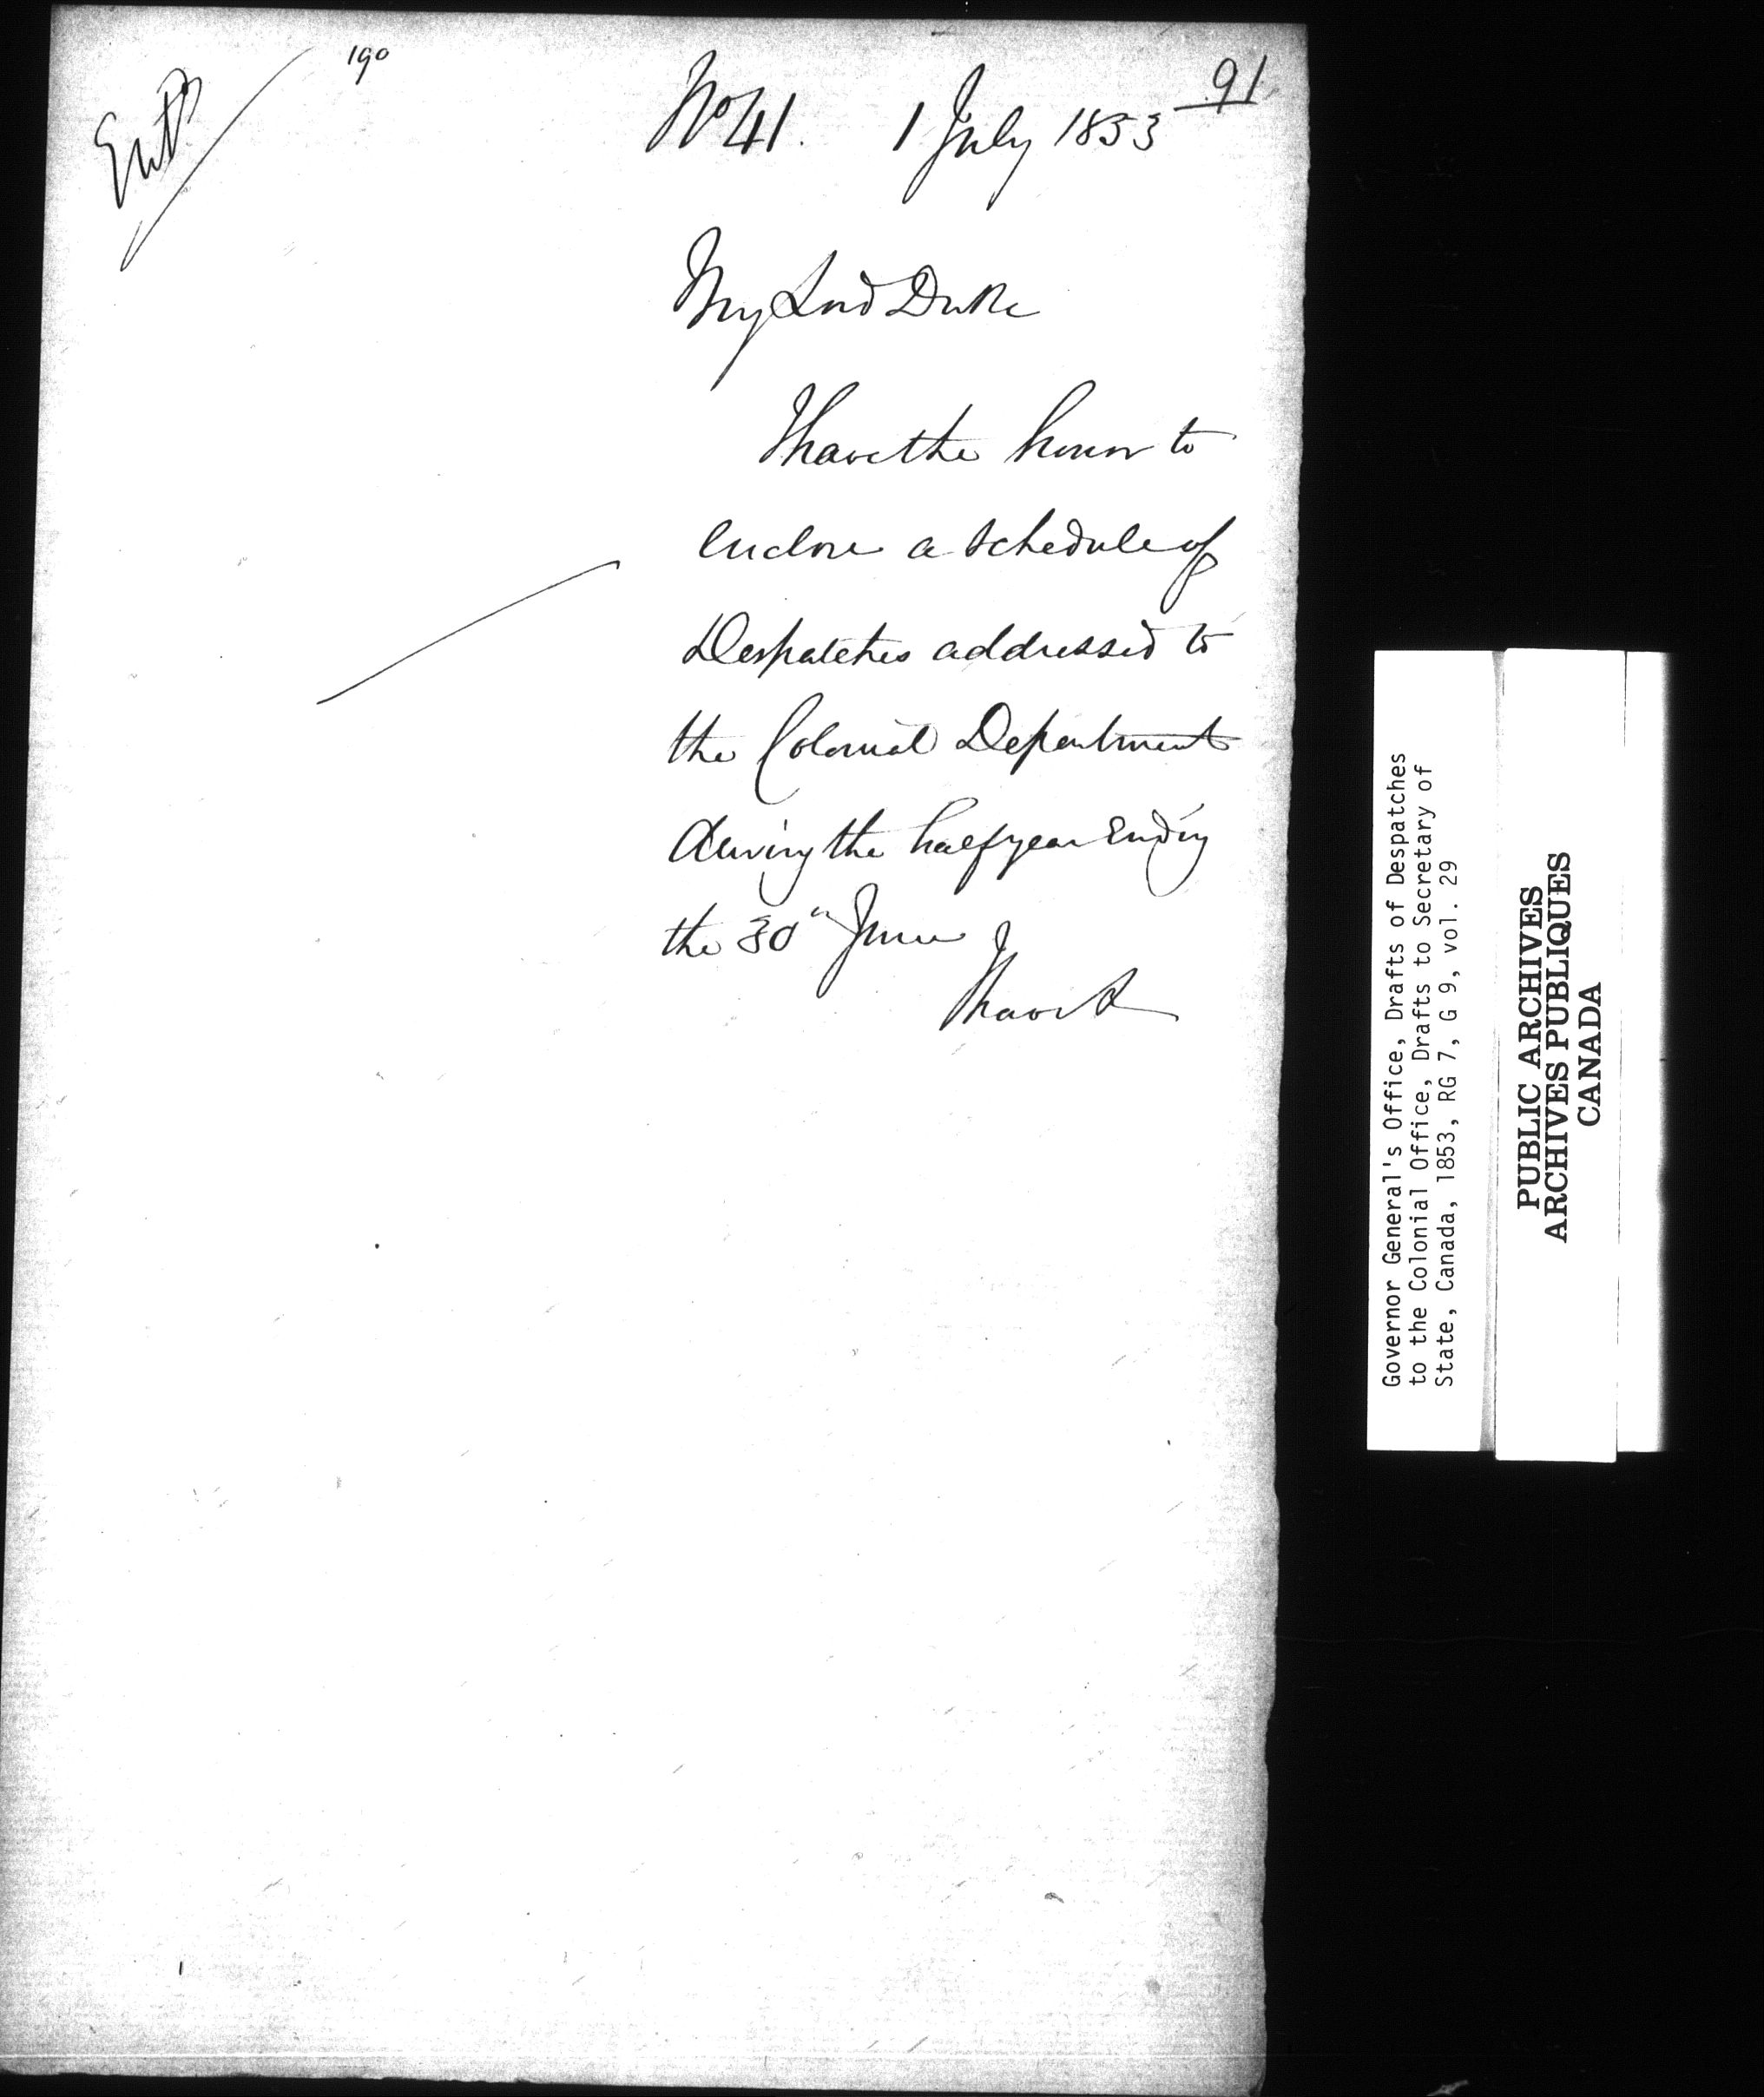 Entd
190
91
No 41. 1 July 1853
My Lord Duke
I have the honor to
enclose a schedule of
Despatches addressed to
the Colonial Department
during the half year Ending
the 30th June
I have &
Governor General's Office, Drafts of Despatches
to the Colonial Office, Drafts to Secretary of
State, Canada, 1853, RG 7, G 9, vol. 29
PUBLIC ARCHIVES
ARCHIVES PUBLIQUES
CANADA